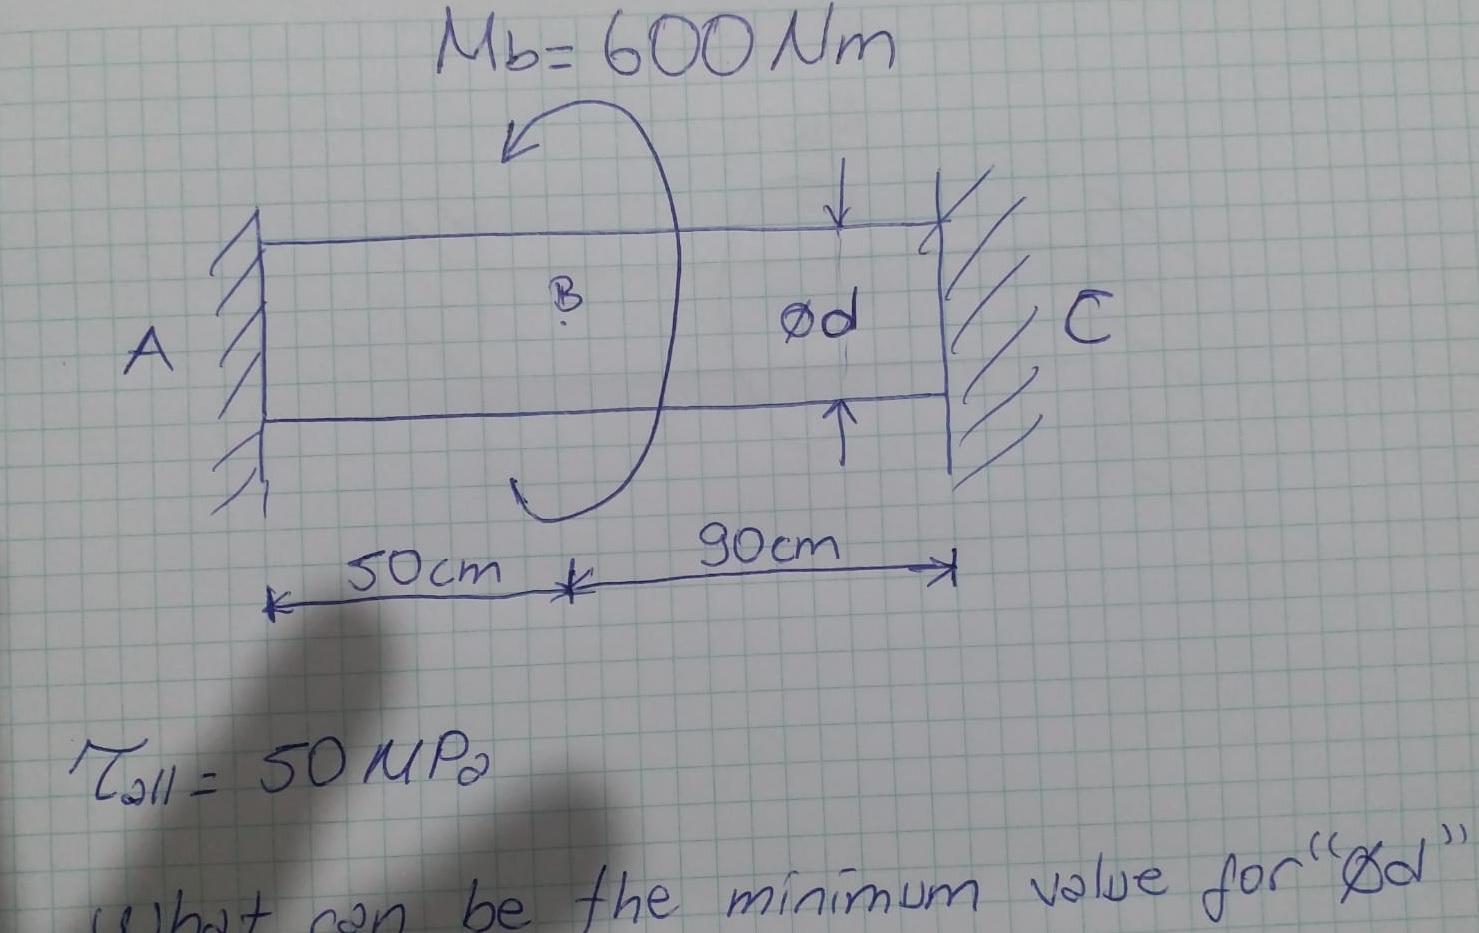 Mb= 600 Nm
B
Ød
A
C
50cm
90cm
τall = 50 MPa
What can be the minimum value for "Ød"